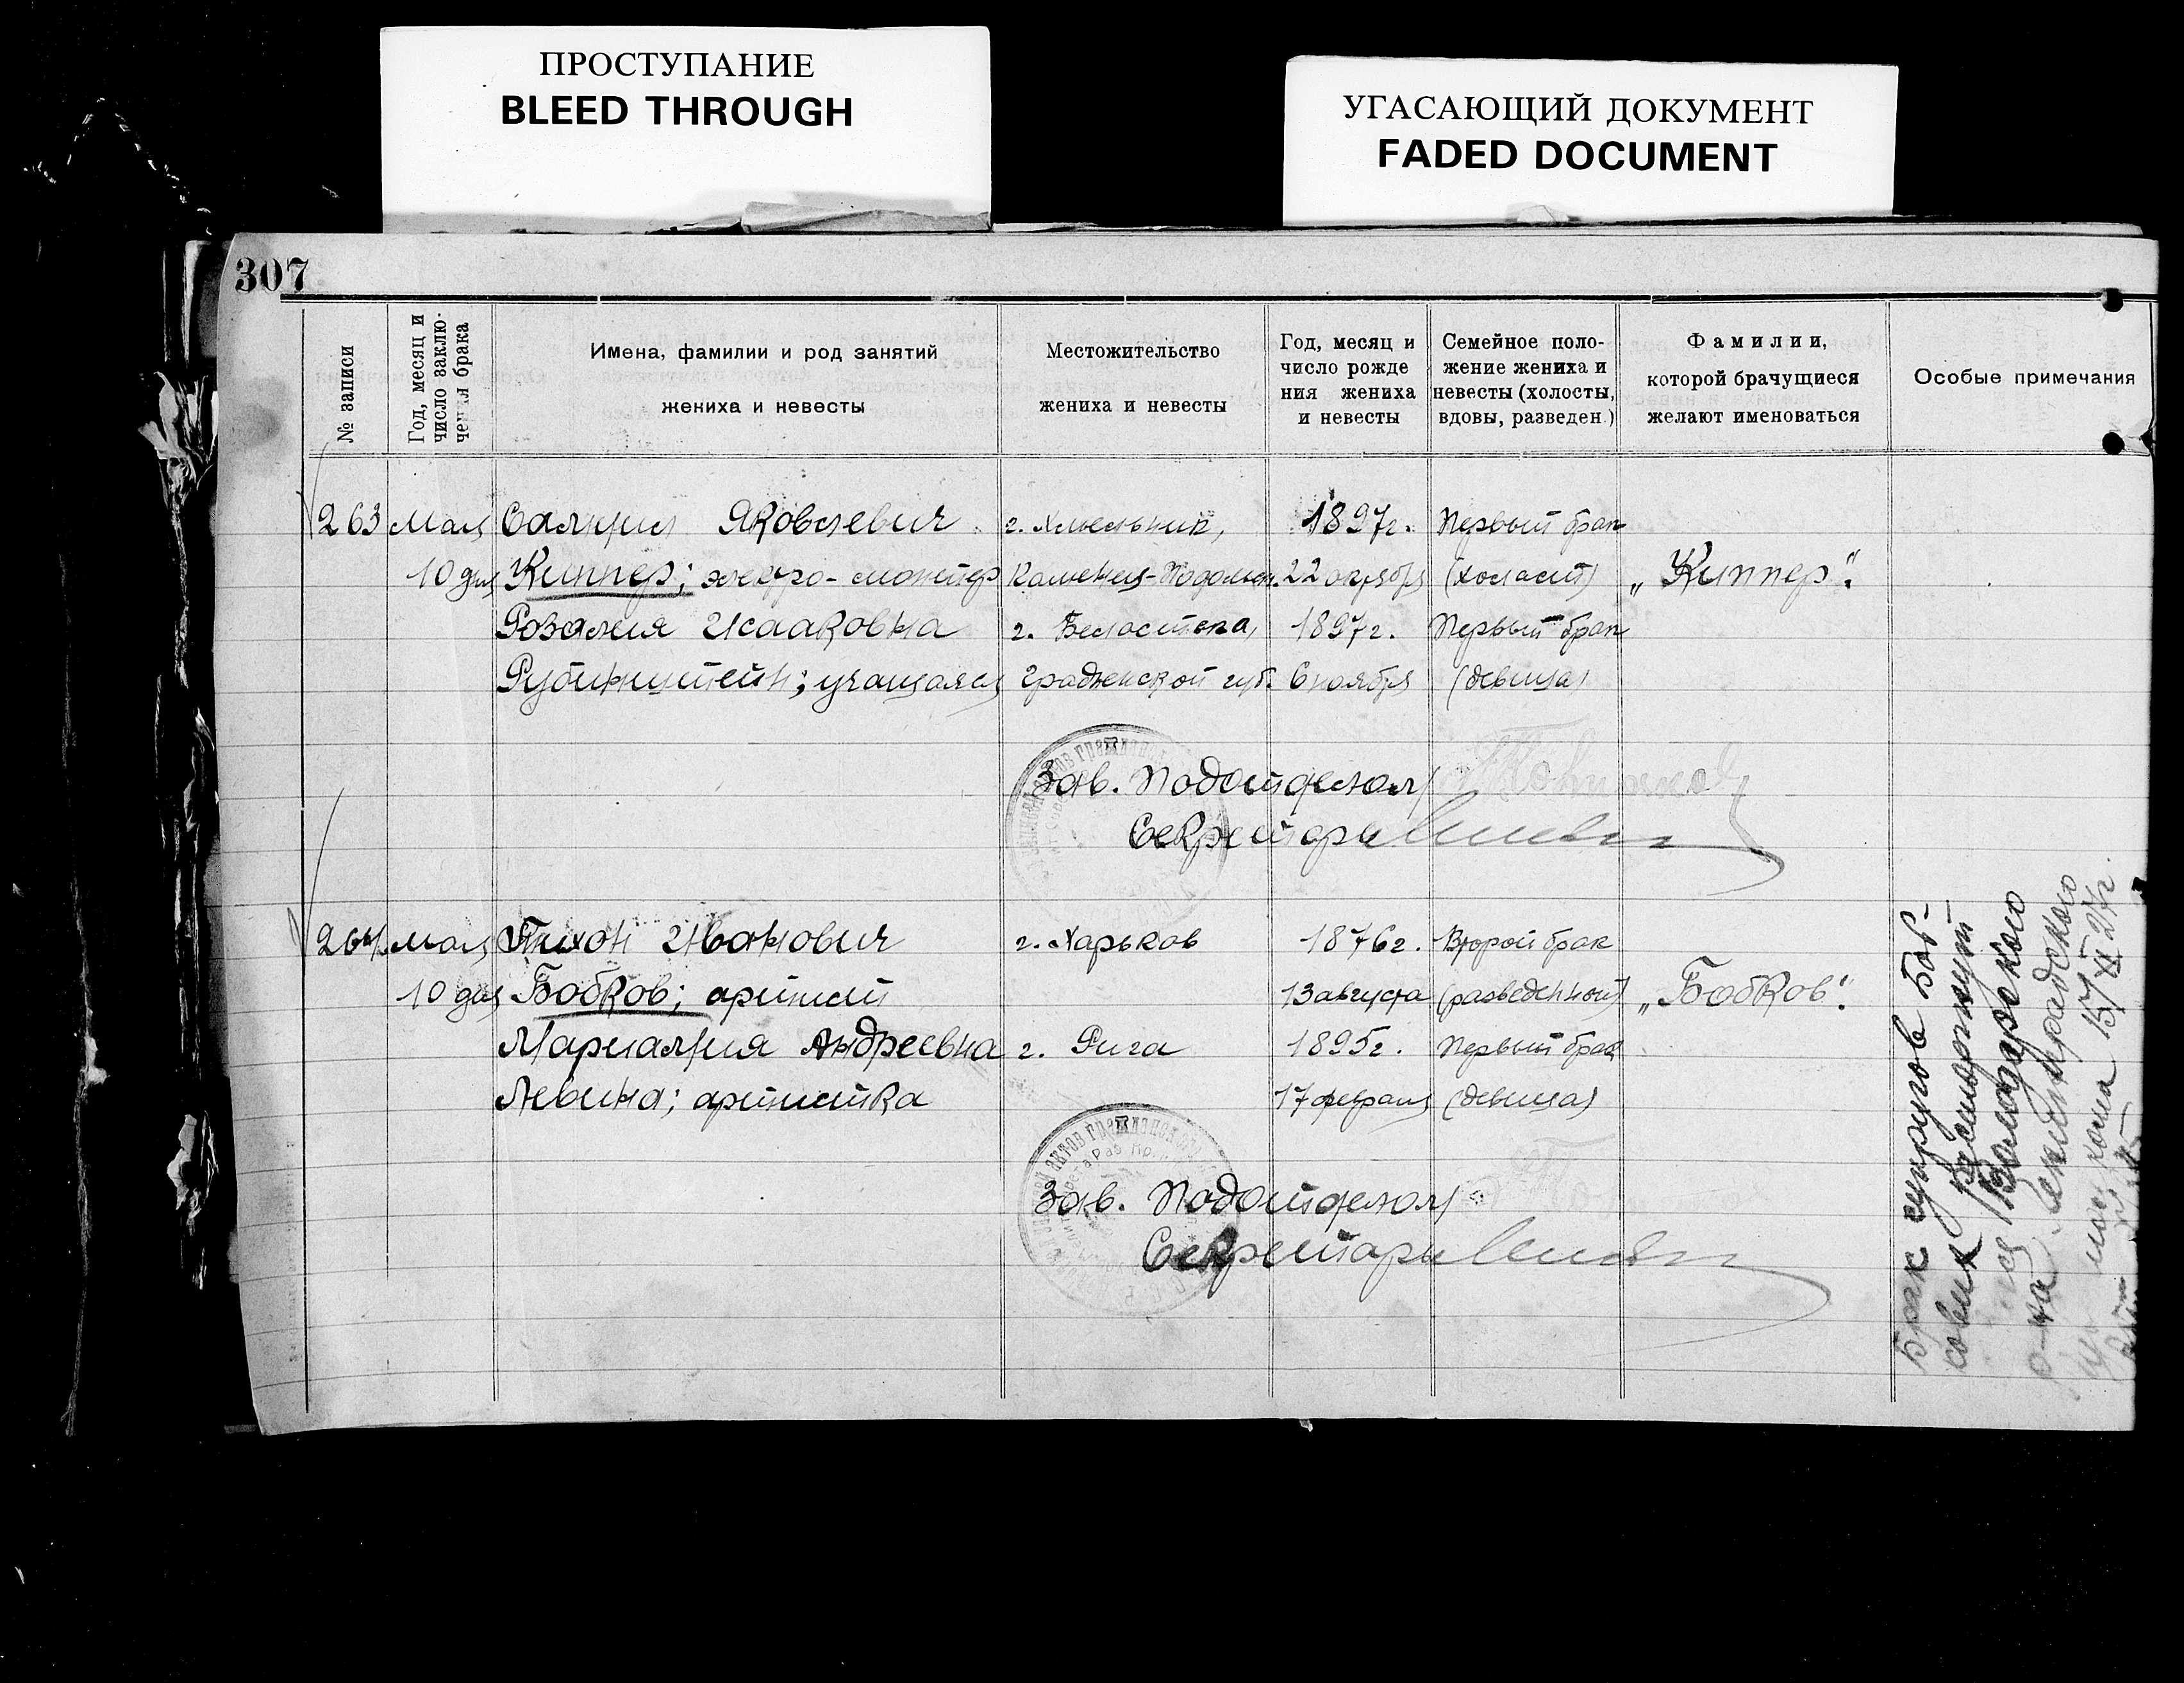 ПРОСТУПАНИЕ
BLEED THROUGH
УГАСАЮЩИЙ ДОКУМЕНТ
FADED DOCUMENT
307
№ записи
Год, месяц и
число заклю-
чения брака
Имена, фамилии и род занятий
жениха и невесты
Местожительство
жениха и невесты
Год, месяц и
число рожде
ния жениха
и невесты
Семейное поло-
жение жениха и
невесты (холосты,
вдовы, разведен.)
Фамилии,
которой брачущиеся
желают именоваться
Особые примечания
263 Мая Яковлевич г. Хмельник, 1897г. Первый брак
10 дня Киппер; электро-монтер Каменец-Подольск. 22 октября (холост) „Киппер".
Розалия Исааковна г. Белостока, 1897г. Первый брак
Рубинштейн; учащаяся Гродненской губ. 6 ноября (девица)
Зав. Подотделом
Секретарь
264 Мая Тихон Иванович г. Харьков 1876г. Второй брак
10 дня Бобков; артист 13 августа (разведенный) „Бобков".
Мариамия Андреевна г. Рига 1895г. Первый брак
Левина; артистка 17 февраля (девица)
Зав. Подотделом
Секретарь
Брак супругов Боб-
ковых расторгнут
Володарского
р-на Ленинградского
15/XI 27г.